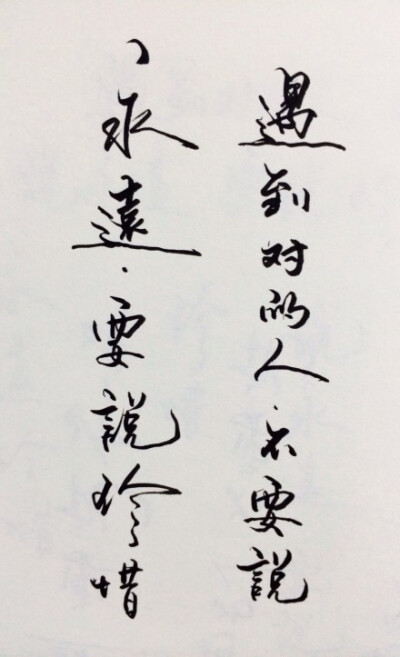 遇到对的人.不要说
永遠.要説珍惜